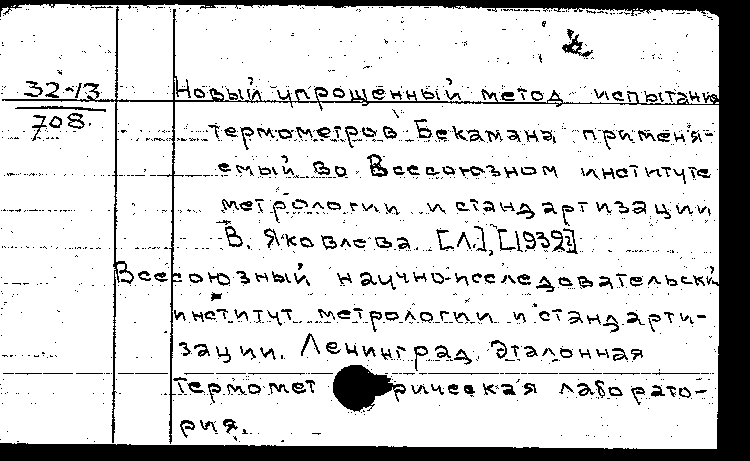 32-13
708.
Новый упрощенный метод испытания
термометров Бекамана, применя-
емый во Всесоюзном институте
метрологии и стандартизации
В. Яковлева. [Л.], [1932?]
Всесоюзный научно-исследовательский
институт метрологии и стандарти-
зации. Ленинград. Эталонная
термометрическая лаборато-
рия.